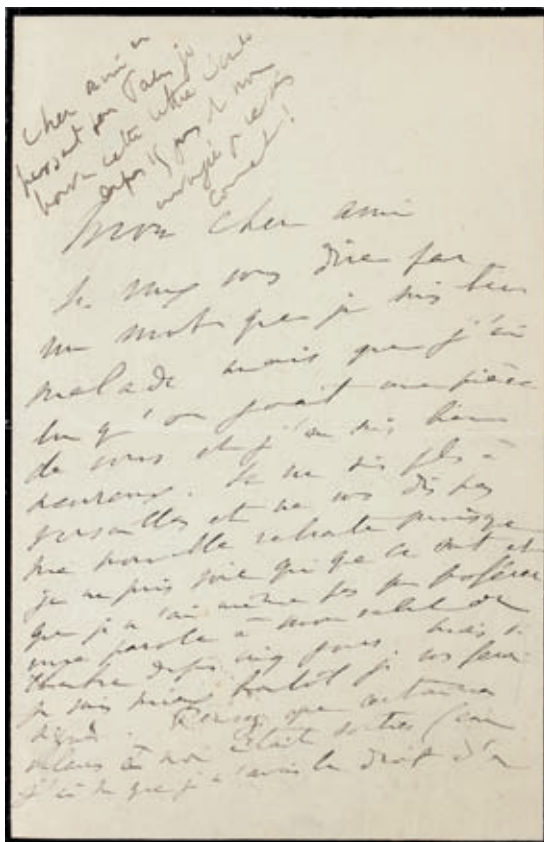 Cher ami en
passant par Paris je
trouve cette lettre écrite
depuis 15 jours et non
envoyée
Mon cher ami
Je veux vous dire par
un mot que je suis très
malade mais que j'ai
lu qu'on jouait une pièce
de vous et j'en suis bien
heureux. Je ne suis plus à
Versailles et ne vous dis pas
ma nouvelle retraite puisque
je ne puis voir qui que ce soit et
que je n'ai même pas pu proférer
une parole à mon valet de
chambre depuis cinq jours. Mais si
je vais mieux bientôt je vous ferai
signe. Pensez que certaines
valeurs à moi étaient sorties
j'ai lu que je n'avais le droit d'en